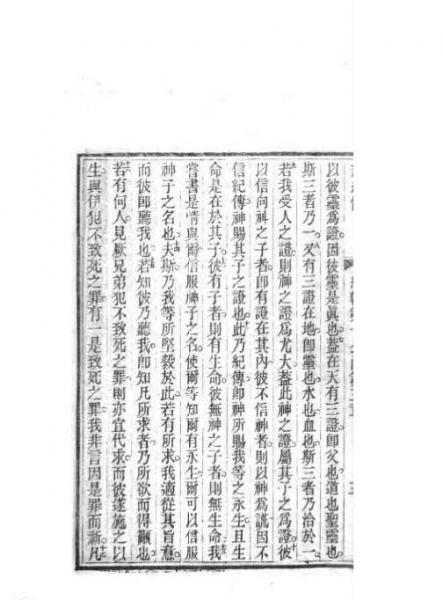 以彼靈爲證因彼靈是眞也蓋在天有三證卽父也道也聖靈也
斯三者乃一又有三證在地卽靈也水也血也斯三者乃洽於一
若我受人之證則神之證爲尤大蓋此神之證屬其子之爲證彼
以信向神之子者卽有證在其內彼不信神者則以神爲謊因不
信紀傳神賜其子之證也此乃紀傳卽神所賜我等之永生且生
命是在於其子彼有子者則有生命彼無神之子者則無生命我
嘗書是情與爾信服神子之名使爾等知爾有永生爾可以信服
神子之名也夫斯乃我等所堅毅於此若有所求我適從其旨意
而彼卽聽我也若知彼乃聽我卽知凡所求者乃所欲而得顧也
若有何人見厥兄弟犯不致死之罪則亦宜代求而彼遂施之以
生與伊犯不致死之罪有一是致死之罪我非言因是罪而祈凡